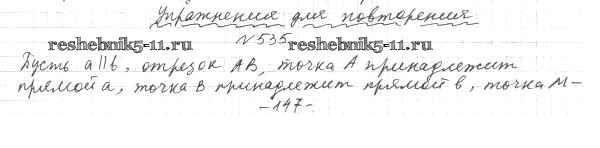 Упражнения для повторения
reshebnik5-11.ru №535 reshebnik5-11.ru
Пусть a||b, отрезок AB, точка A принадлежит
прямой a, точка B принадлежит прямой b, точка M-
-147-